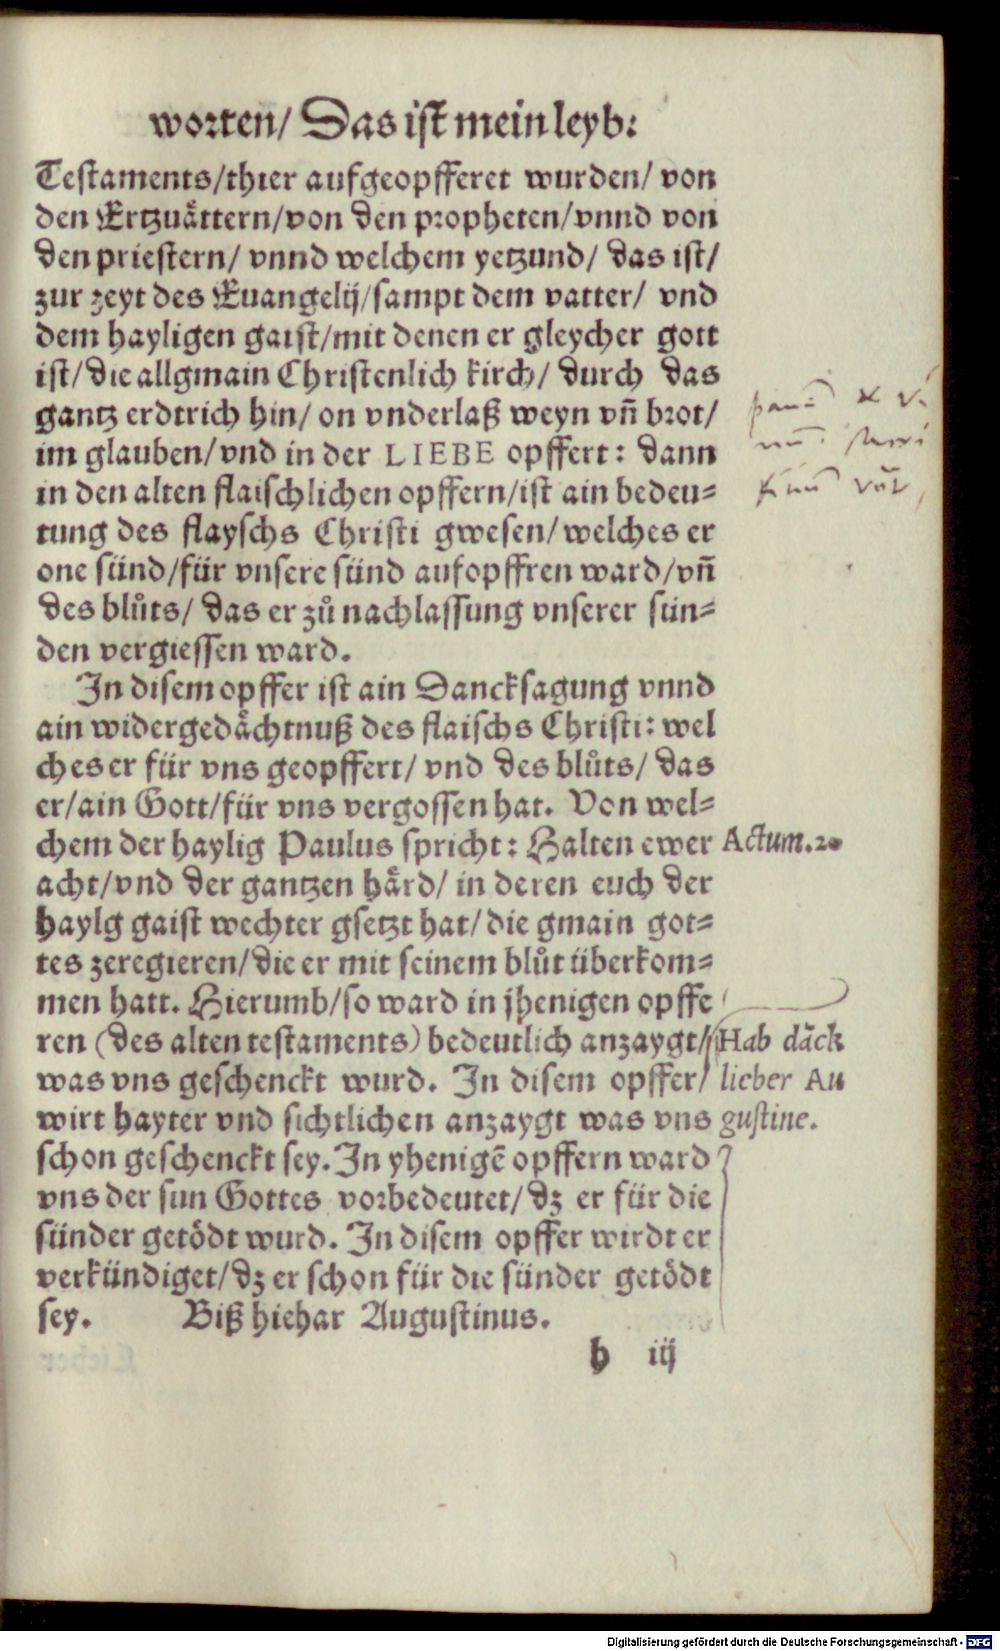 worten/ Das ist mein leyb:
Testaments/thier aufgeopfferet wurden/ von
den Ertzuåttern/von den propheten/vnnd von
den priestern/ vnnd welchem yetzund/ das ist/
zur zeyt des Euangelij/sampt dem vatter/ vnd
dem hayligen gaist/mit denen er gleycher gott
ist/die allgmain Christenlich kirch/ durch das
gantz erdtrich hin/ on vnderlaß weyn vñ brot/
im glauben/vnd in der LIEBE opffert: dann
in den alten flaischlichen opffern/ist ain bedeu-
tung des flayschs Christi gwesen/welches er
one sünd/für vnsere sünd aufopffren ward/vñ
des blůts/ das er zů nachlassung vnserer sün-
den vergiessen ward.
In disem opffer ist ain Dancksagung vnnd
ain widergedåchtnuß des flaischs Christi: wel
ches er für vns geopffert/ vnd des blůts/ das
er/ain Gott/für vns vergossen hat. Von wel-
chem der haylig Paulus spricht: Halten ewer
Actum.20
acht/vnd der gantzen hård/ in deren euch der
haylg gaist wechter gsetzt hat/die gmain got-
tes zeregieren/die er mit seinem blůt überkom-
men hatt. Hierumb/so ward in jhenigen opffe
ren (des alten testaments) bedeutlich anzaygt/
was vns geschenckt wurd. In disem opffer/
wirt hayter vnd sichtlichen anzaygt was vns
Hab dåck
lieber Au
gustine.
schon geschenckt sey. In yhenigē opffern ward
vns der sun Gottes vorbedeutet/dz er für die
sünder getödt wurd. In disem opffer wirdt er
verkündiget/dz er schon für die sünder getödt
sey. Biß hiehar Augustinus.
b iij
Digitalisierung gefördert durch die Deutsche Forschungsgemeinschaft - DFG